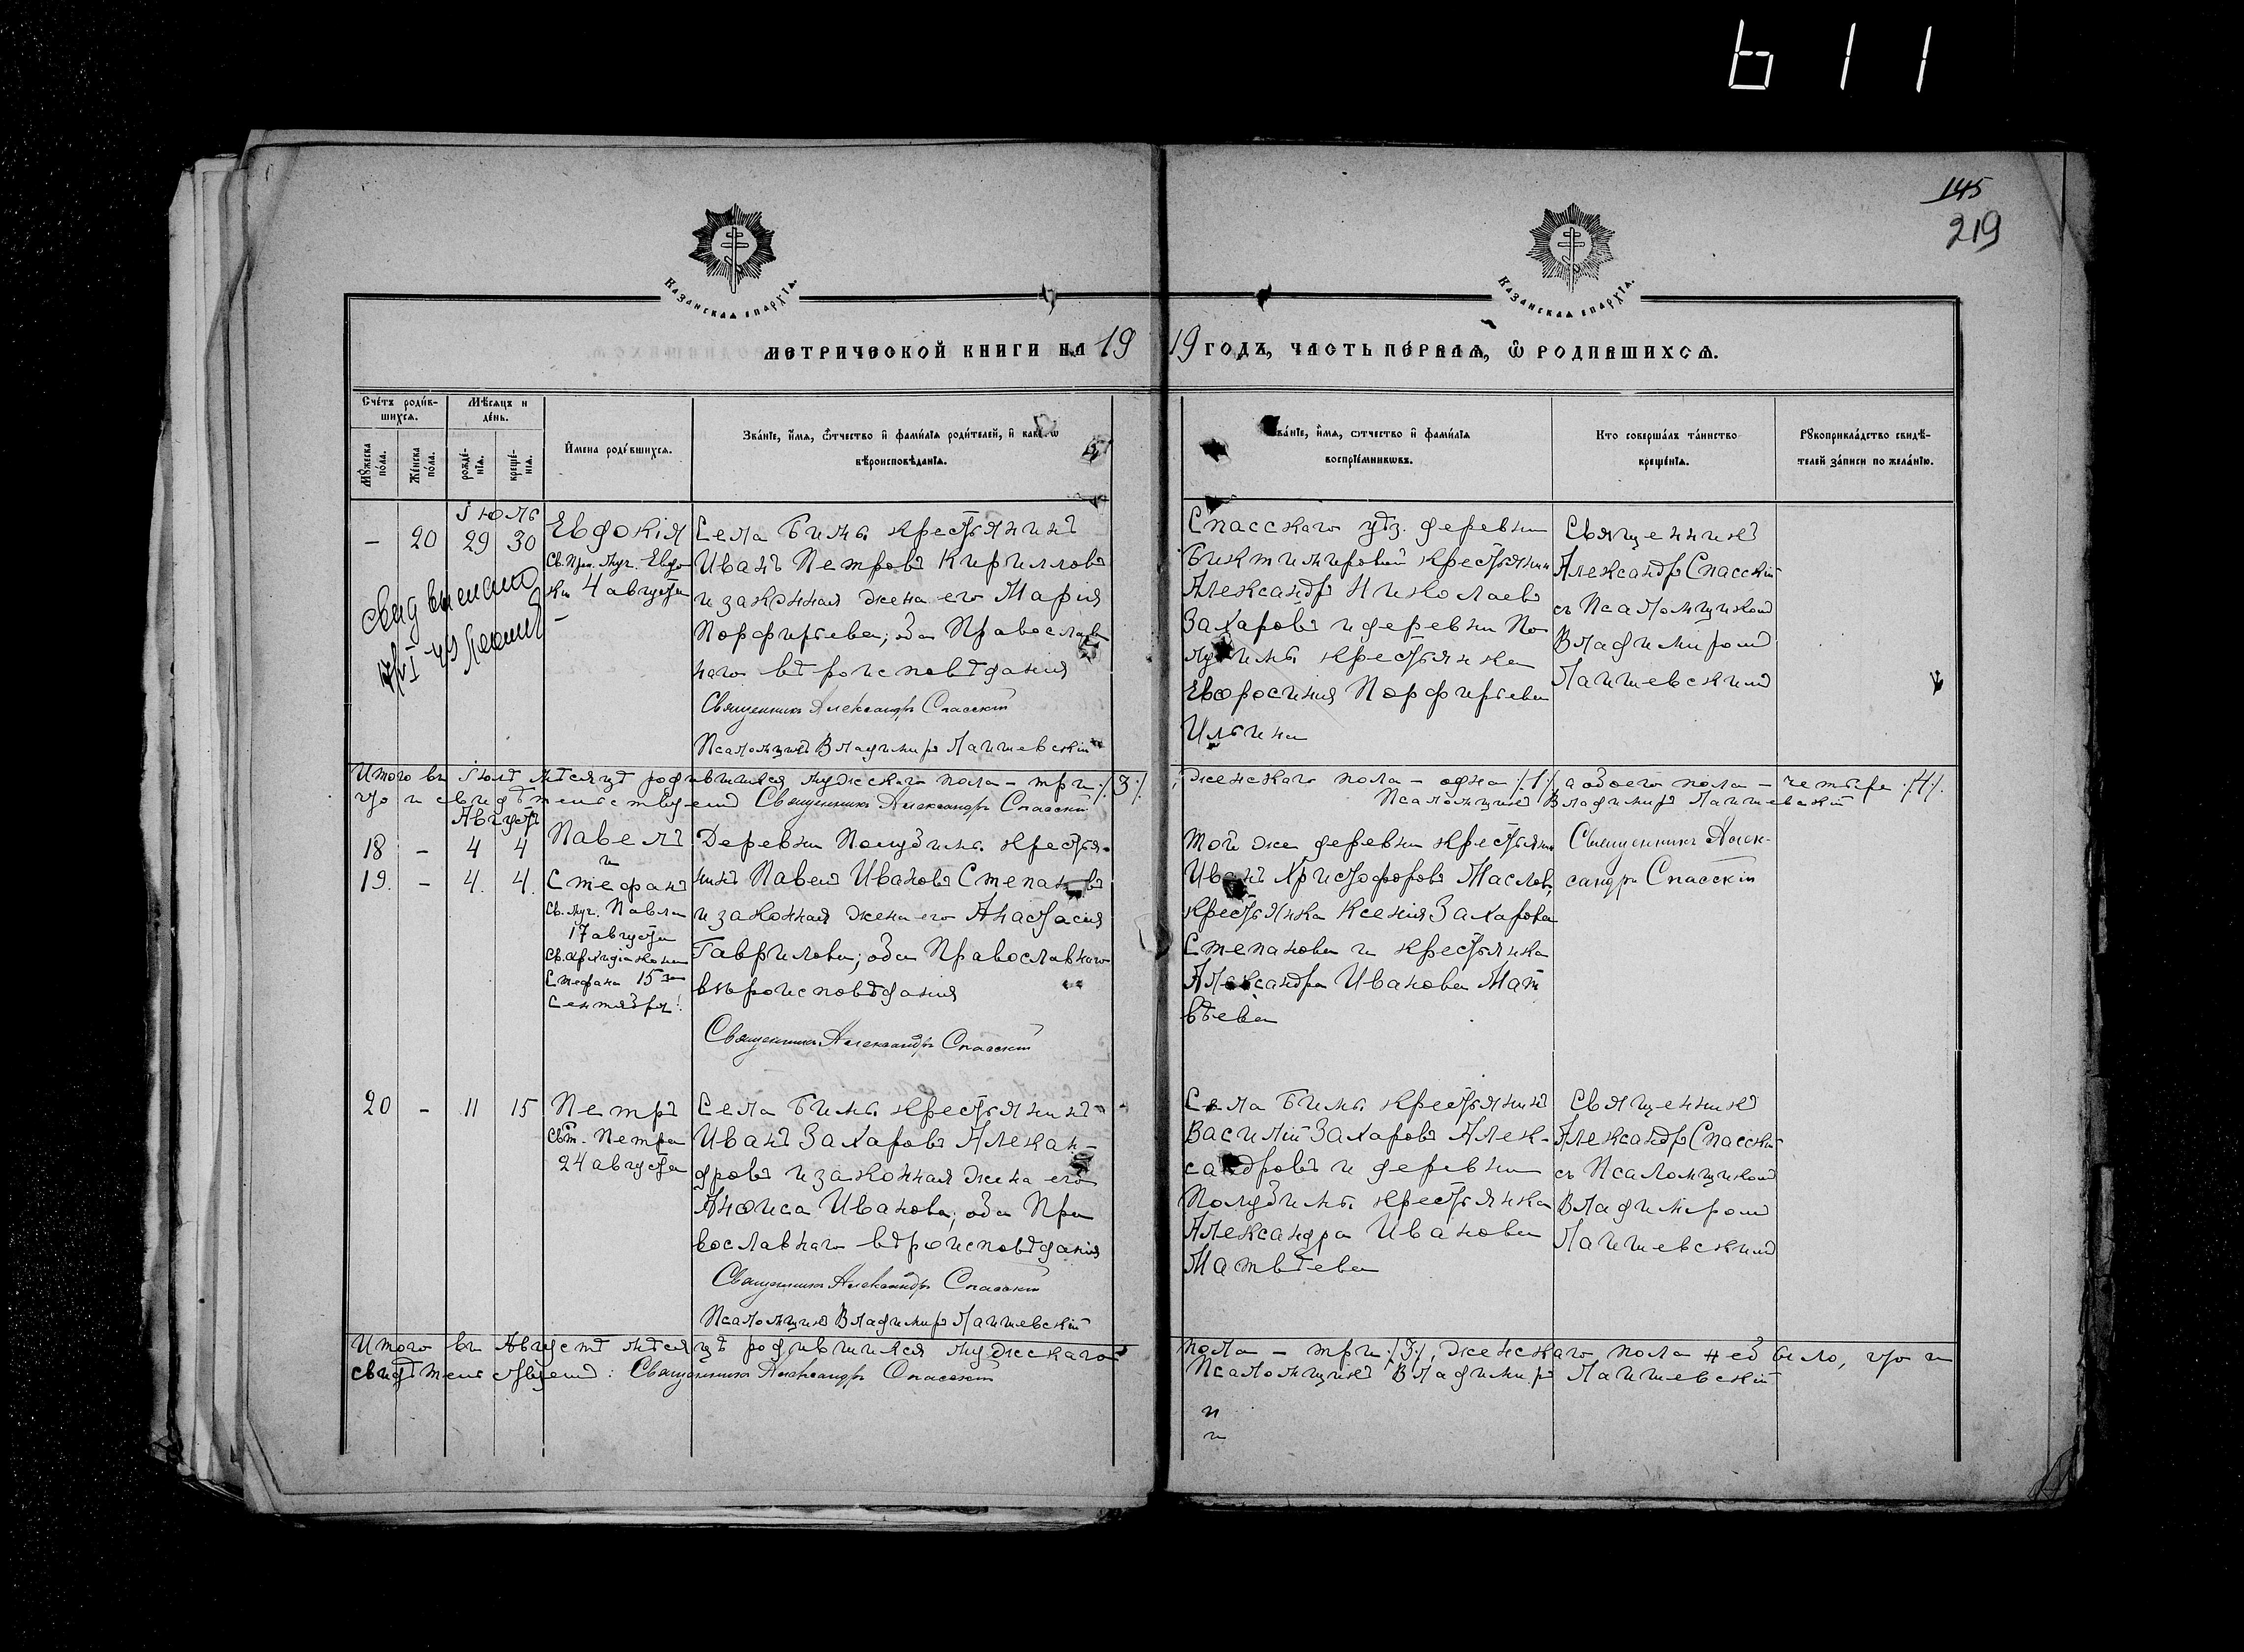 611
145
219
Казанская епархїа.
Казанская епархїа.
Метрической книги на 1919 годъ, часть первая, ѡ родившихся.
Счетъ родив-
шихся.
Мѣсяцъ и
день.
Мужеска
пола.
Женска
пола.
рожде-
нїя.
креще-
нїя.
Имена родившихся.
Званїе, имя, отчество и фамилїя родителей, и какого
вѣроисповѣданїя.
Званїе, имя, отчество и фамилїя
воспрїемниковъ.
Кто совершалъ таинство
крещенїя.
Рукоприкладство свидѣ-
телей записи по желанїю.
Іюль
– 20 29 30
Евдокія
Св. Прп. Муч. Евдо
кіи 4 августа
Села Бимы крестьянинъ
Иванъ Петровъ Кирилловъ
и законная жена его Марія
Порфирьева; оба Православ
наго вѣроисповѣданія
Священникъ Александръ Спасскій
Псаломщикъ Владимиръ Лаишевскій
Спасскаго уѣз. деревни
Биктимировой крестьянин
Александръ Николаевъ
Захаровъ и деревни По
лубимы крестьянка
Евфросинія Порфирьева
Ильина
Священникъ
Александръ Спасскій
съ Псаломщикомъ
Владимиромъ
Лаишевскимъ
Итого въ Іюлѣ мѣсяцѣ родившихся мужскаго пола – три /3/, женскаго пола – одна /1/, а обоего пола – четыре /4/.
что и свидѣтельствуемъ Священникъ Александръ Спасскій Псаломщикъ Владимиръ Лаишевскій
Августъ
18 – 4 4
19. – 4. 4.
Павелъ
и
Стефанъ
Св. муч. Павла
17 августа
Св. архидіакона
Стефана 15 го
Сентября!
Деревни Полубимы крестья-
нинъ Павелъ Ивановъ Степановъ
и законная жена его Анастасія
Гаврилова; оба Православнаго
вѣроисповѣданія
Священникъ Александръ Спасскій
Той же деревни крестьянин
Иванъ Христофоровъ Маслов,
крестьянка Ксенія Захарова
Степанова и крестьянка
Александра Иванова Мат
вѣева
Священникъ Алек-
сандръ Спасскій
20 – 11 15
Петръ
Свт. Петра
24 августа
Села Бимы крестьянинъ
Иванъ Захаровъ Алексан-
дровъ и законная жена его
Анфиса Иванова; оба Пра
вославнаго вѣроисповѣданія
Священникъ Александръ Спасскій
Псаломщикъ Владимиръ Лаишевскій
Села Бимы крестьянинъ
Василій Захаровъ Алек-
сандровъ и деревни
Полубимы крестьянка
Александра Иванова
Матвѣева
Священникъ
Александръ Спасскій
съ Псаломщикомъ
Владимиромъ
Лаишевскимъ
Итого въ Августѣ мѣсяцѣ родившихся мужскаго пола – три /3/, женскаго пола не было, что и
свидѣтельствуемъ: Священникъ Александръ Спасскій Псаломщикъ Владимиръ Лаишевскій
и
и